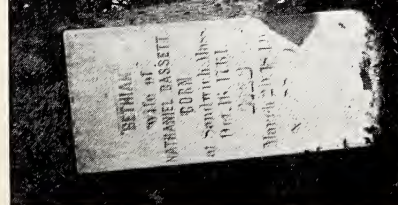 BETHIAH
wife of
NATHANIEL BASSETT
BORN
at Sandwich, Mass.
Oct. 16, 1761
DIED
March